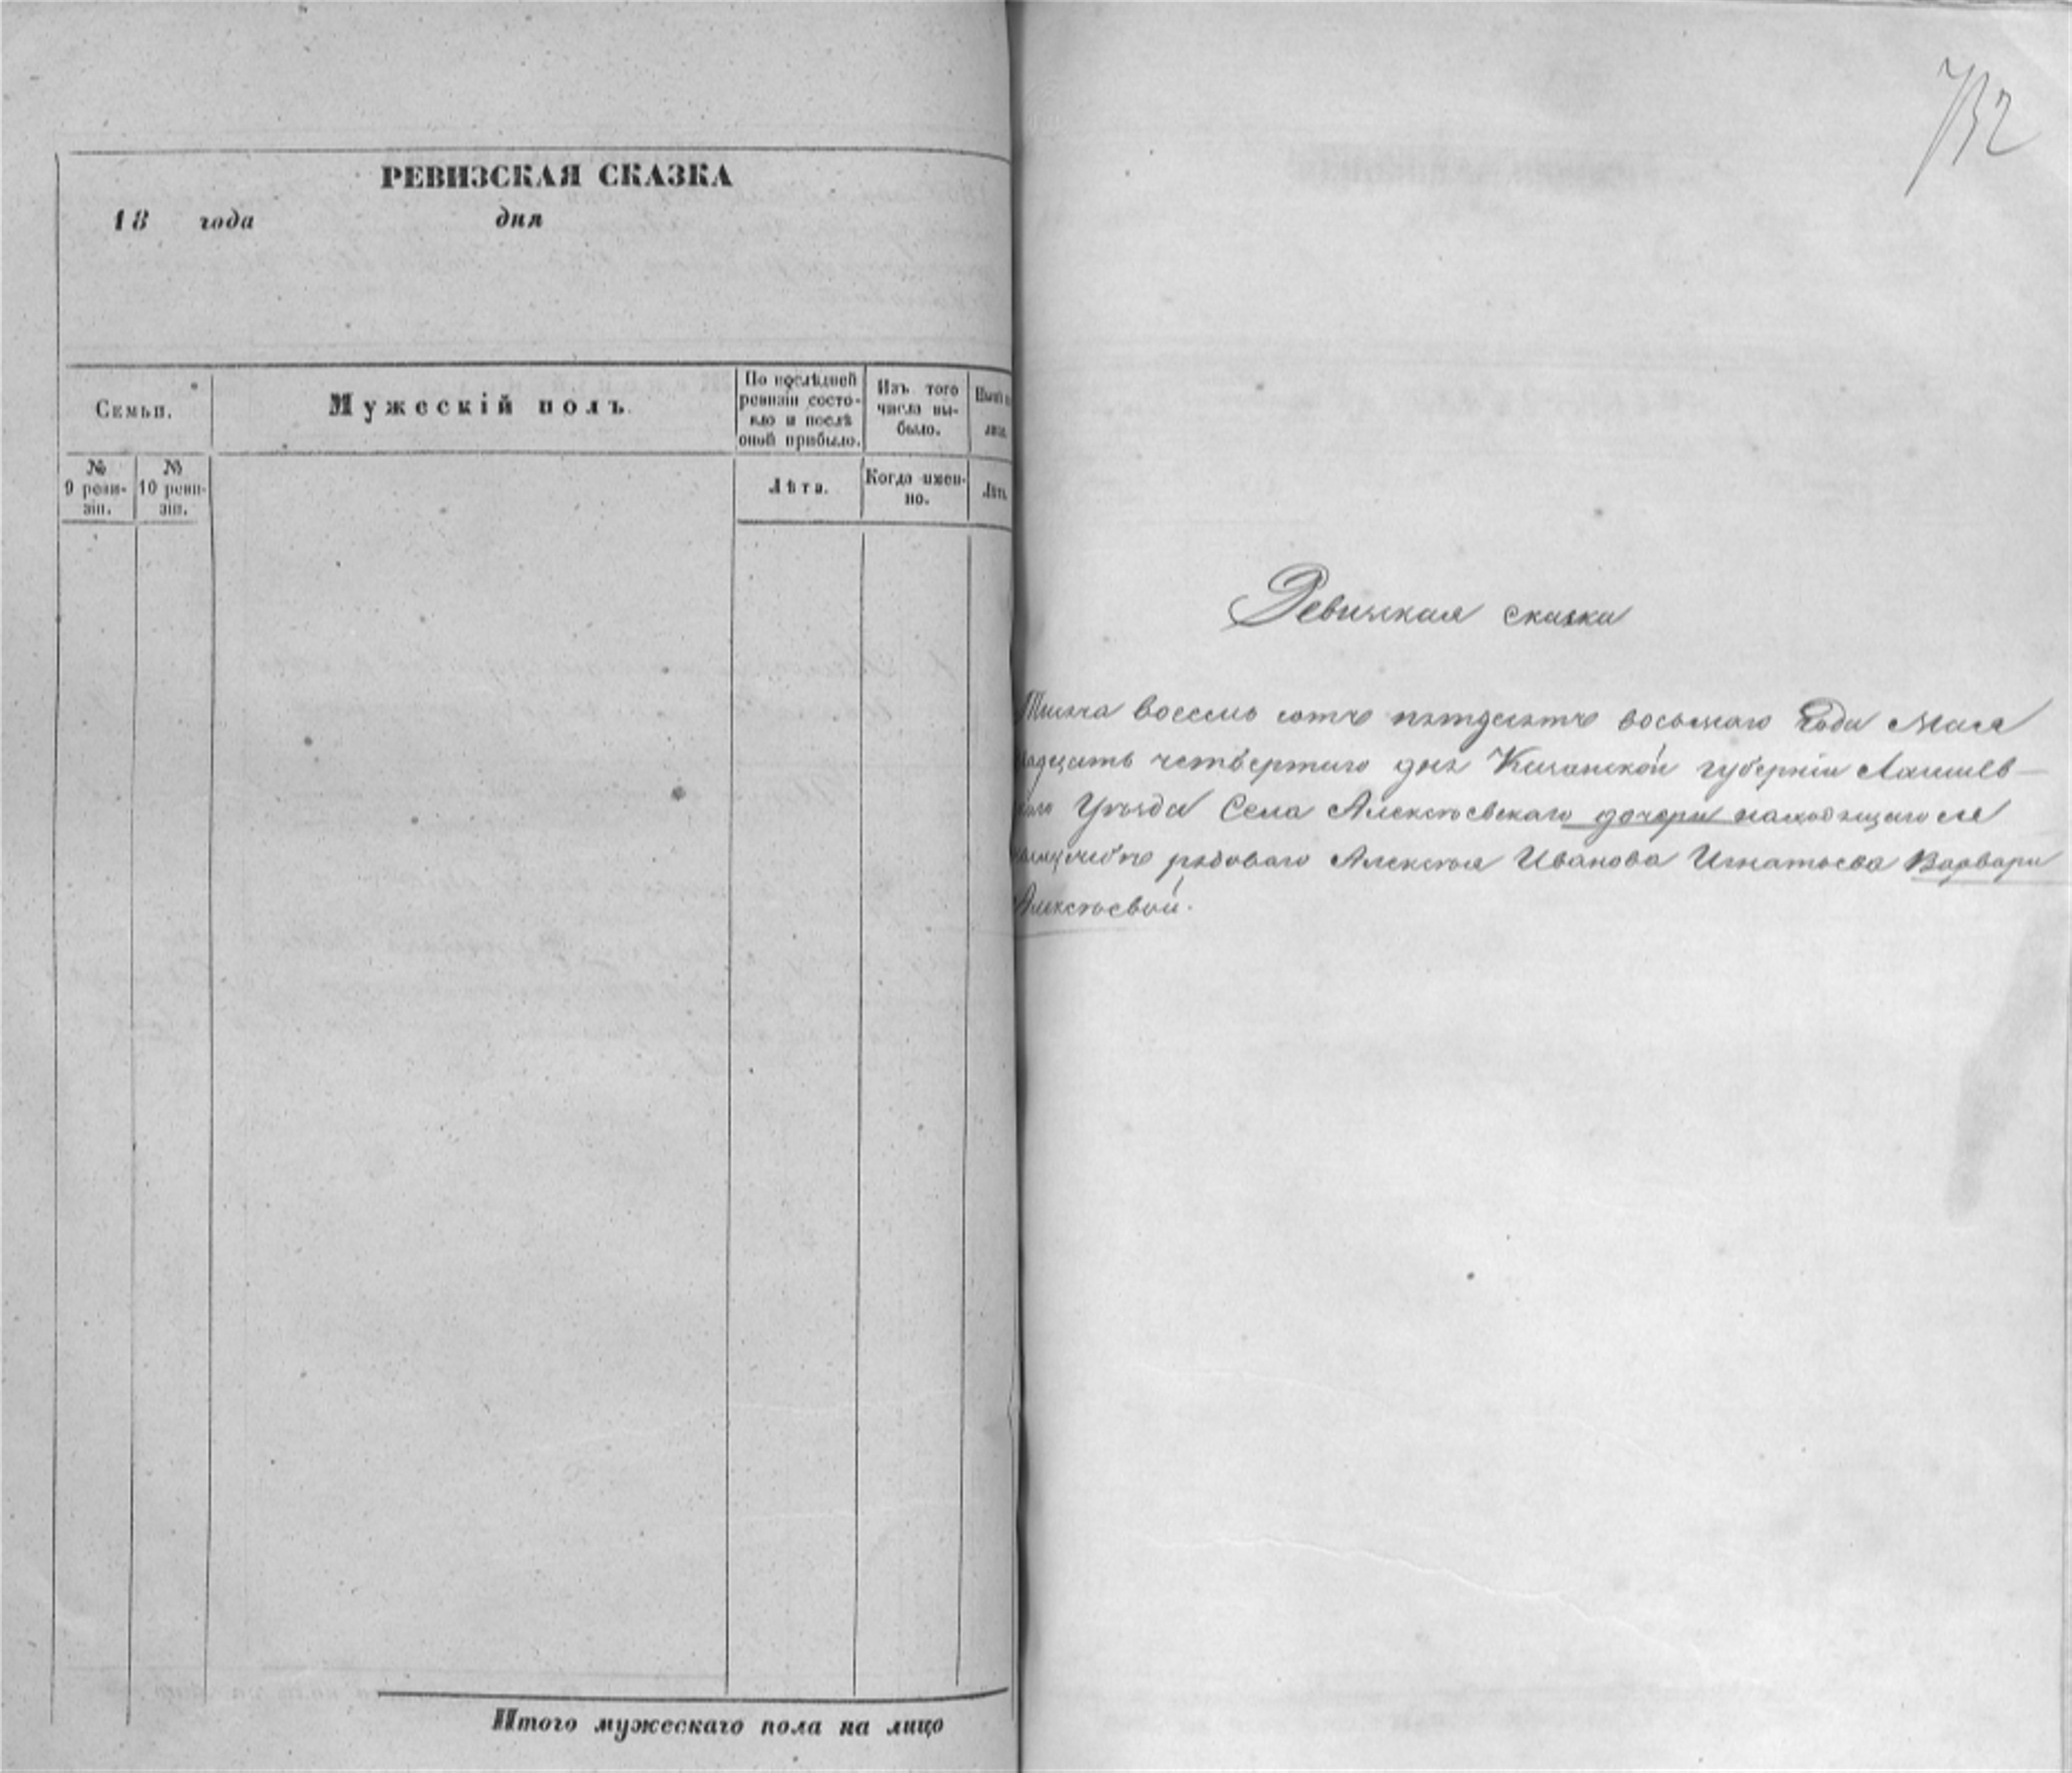 РЕВИЗСКАЯ СКАЗКА
18 года дня
Семьи.
Мужескій полъ.
По послѣдней ревизіи состояло и послѣ оной прибыло.
Изъ того числа выбыло.
№ 9 ревизіи.
№ 10 ревизіи.
Лѣта.
Когда именно.
Лѣта.
Итого мужескаго пола на лицо
732
Ревизкая сказка
Тысяча восемь сотъ пятдесятъ восьмаго Года Мая
двадцать четвертаго дня Казанской губерніи Лаишев–
скаго Уѣзда Села Алексѣевскаго дочери находящагося
рядоваго Алексѣя Иванова Игнатьева Варвары
Алексѣевой.